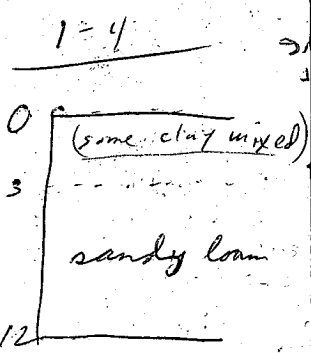 1-4
0
(some clay mixed)
3
sandy loam
12